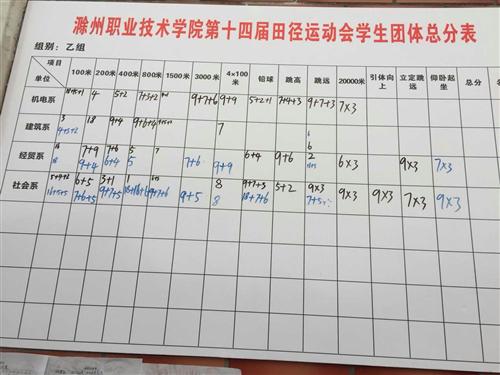 滁州职业技术学院第十四届田径运动会学生团体总分表
组别：乙组
项目 单位 100米 200米 400米 800米 1500米 3000米 4×100米 铅球 跳高 跳远 20000米 引体向上 立定跳远 仰卧起坐 总分
机电系 4 5+2 7+5+2 9+7+6 9+9 5+2+1 7+4+3 9+7+3 7×3
建筑系 3 18 9+4 9+6+4 7 6
4+5+2 6
经贸系 7+9 7+6 5 7 6+4 9+6 2 6×3 9×3 7×3
9+4 6+4 5 7+6 9+9
社会系 5+4+2 6+5 3+1 1 8 9+7+3 5+2 9×3 9×3 9×3 7×3 9×3
16+5+5 7+6+5 9+7+5 9+7+6 9+5 8 18+7+6